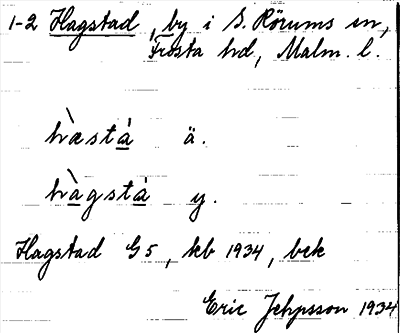 1-2 Hagstad, by i S. Rörums sn,
Frosta hd, Malm. l.
hæ̀stà ä.
hàgstà y.
Hagstad G5, kb 1934, bek
Eric Jehpsson 1934